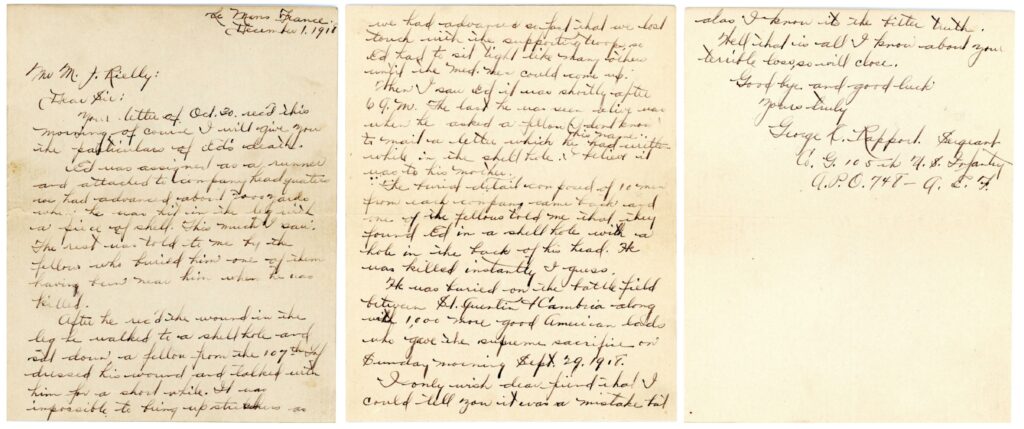 Le Mans France.
December 1, 1918
Mr M. J. Rielly:
Dear Sir:
Your letter of Oct. 30. rec'd this
morning, of course I will give you
the particulars of Ed's death.
Ed was assigned as a runner
and attached to company headquaters
we had advanced about 2000 yards
when he was hit in the leg with
a piece of shell. This much I saw.
The rest was told to me by the
fellows who buried him one of them
having been near him when he was
killed.
After he rec'd the wound in the
leg he walked to a shell hole and
sat down, a fellow from the 107th Inf
dressed his wound and talked with
him for a short while. It was
impossible to bring up stretchers as
we had advanced so fast that we lost
touch with the supporting troops, so
Ed had to sit tight like many others
until the Med. Men could come up.
When I saw Ed it was shortly after
6 A.M. The last he was seen alive was
when he asked a fellow (I dont know
his name)
to mail a letter which he had written
while in the shell hole. I belied it
was to his mother.
The buried detail composed of 10 men
from each company came back and
one of the fellows told me that they
found Ed in a shell hole with a
hole in the back of his head. He
was killed instantly I guess.
He was buried on the battlefield
between St. Quentin & Cambria along
with 1,000 more good American lads
who gave the supreme sacrifice on
Sunday morning Sept. 29, 1918.
I only wish dear friend that I
could tell you it was a mistake but
alas I know it the bitter truth.
Well that is all I know about your
terrible loss, so will close.
Good bye and good luck
Yours truly
George R. Rapport. Sergeant
Co. G. 105th U.S. Infantry
A.P.O. 748 – A. E. F.